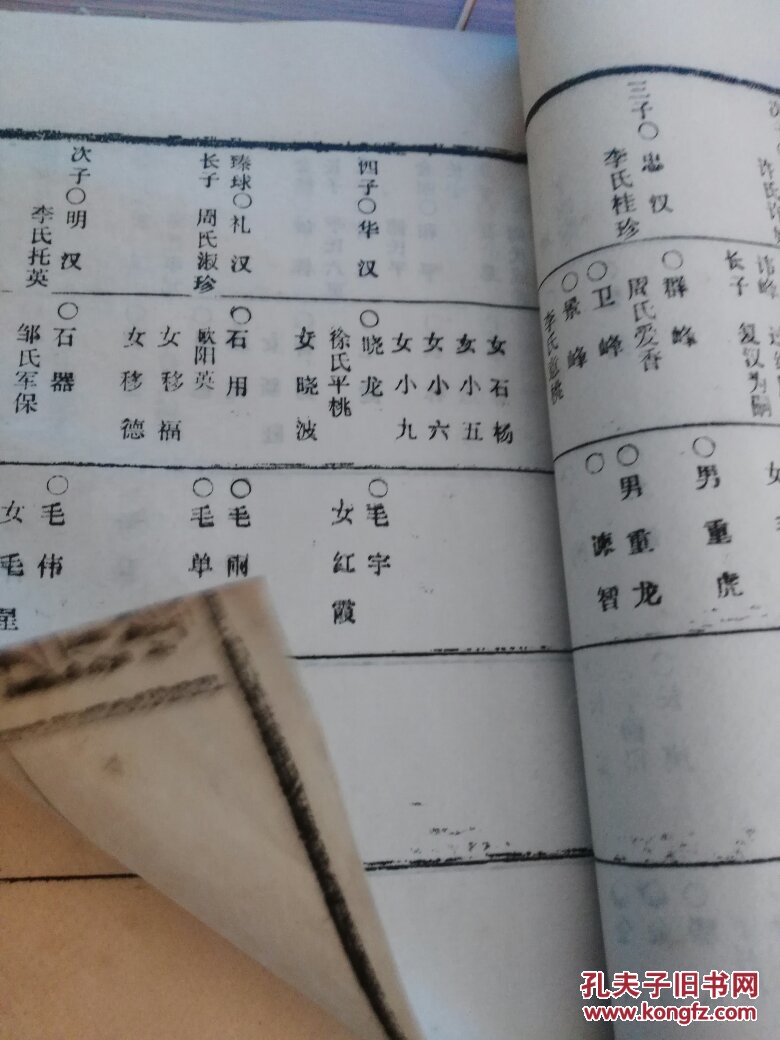 三子○忠汉
李氏桂珍
长子
复汉为嗣
○群峰
周氏爱香
○卫峰
○景峰
男重虎
○男重龙
四子○华汉
臻球○礼汉
长子 周氏淑珍
次子○明汉
李氏托英
女石杨
女小五
女小六
女小九
○晓龙
徐氏平桃
女晓波
○石用
欧阳英
女移福
女移德
○石器
邹氏军保
○毛宇
女红霞
○毛雨
○毛单
○毛伟
女毛星
孔夫子旧书网
www.kongfz.com